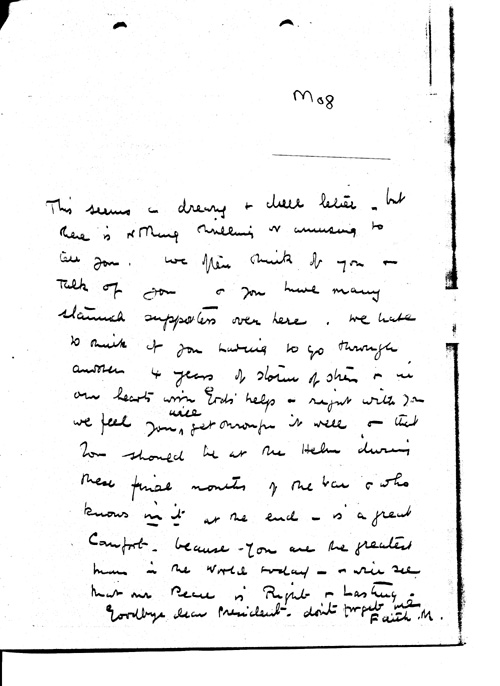 Mo8
This seems a dreary + dull letter - but
there is nothing thrilling or amusing to
tell you. We often think of you +
Talk of you + you have many
staunch supporters over here. We hate
to think of you having to go through
another 4 years of storm of stress + in
our hearts with God's help + right with you
we feel you will get through it well + that
You should be at the Helm during
these final months of the War + who
knows in it at the end - is a great
Comfort - because - You are the greatest
man in the World today - + will see
that our Peace is Right + Lasting -
Goodbye dear President - don't forget me
Faith M.